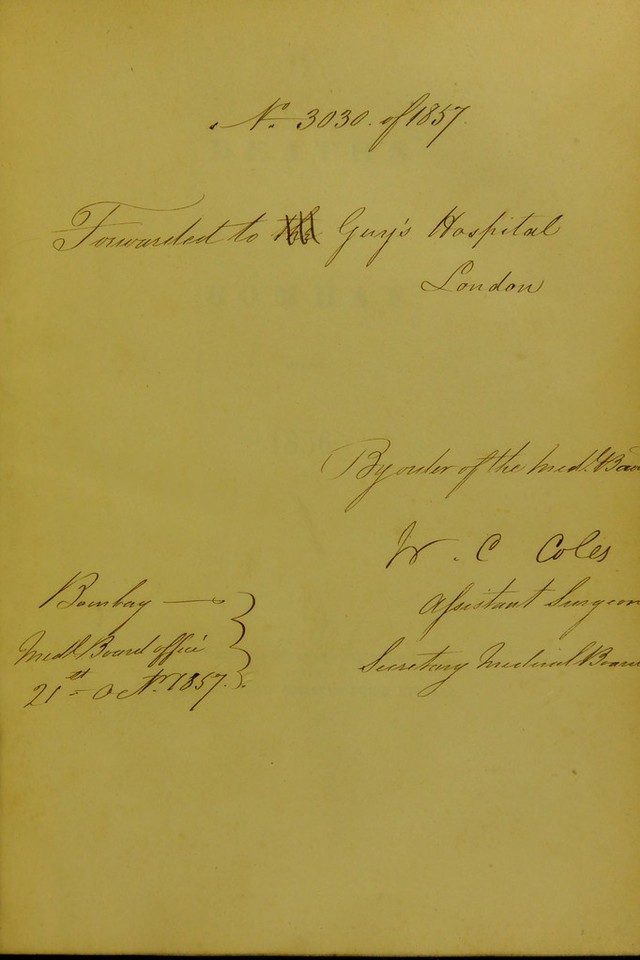 No. 3030. of 1857.
Forwarded to the Guy's Hospital
London
By order of the Medl. Boa
W. C Coles
Assistant Surgeon
Secretary Medical Boar
Bombay —
Medl. Board office
21st Octr. 1857.